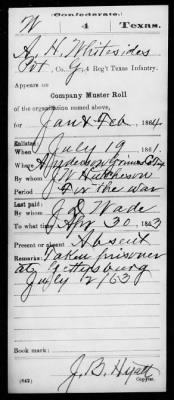 Confederate.
W 4 Texas.
A. H. Whitesides
Pvt, Co. G, 4 Reg't Texas Infantry.
Appears on
Company Muster Roll
of the organization named above,
for Jan & Feb, 1864
Enlisted:
When July 19, 1861.
Where Anderson Grimes Co
By whom J. W. Hutcheson
Period For the war
Last paid:
By whom J. D. Wade
To what time Apr 30, 1863
Present or absent Absent
Remarks: Taken prisoner
at Gettysburg
July 2/63
Book mark:
J. B. Hyatt
(642) Copyist.